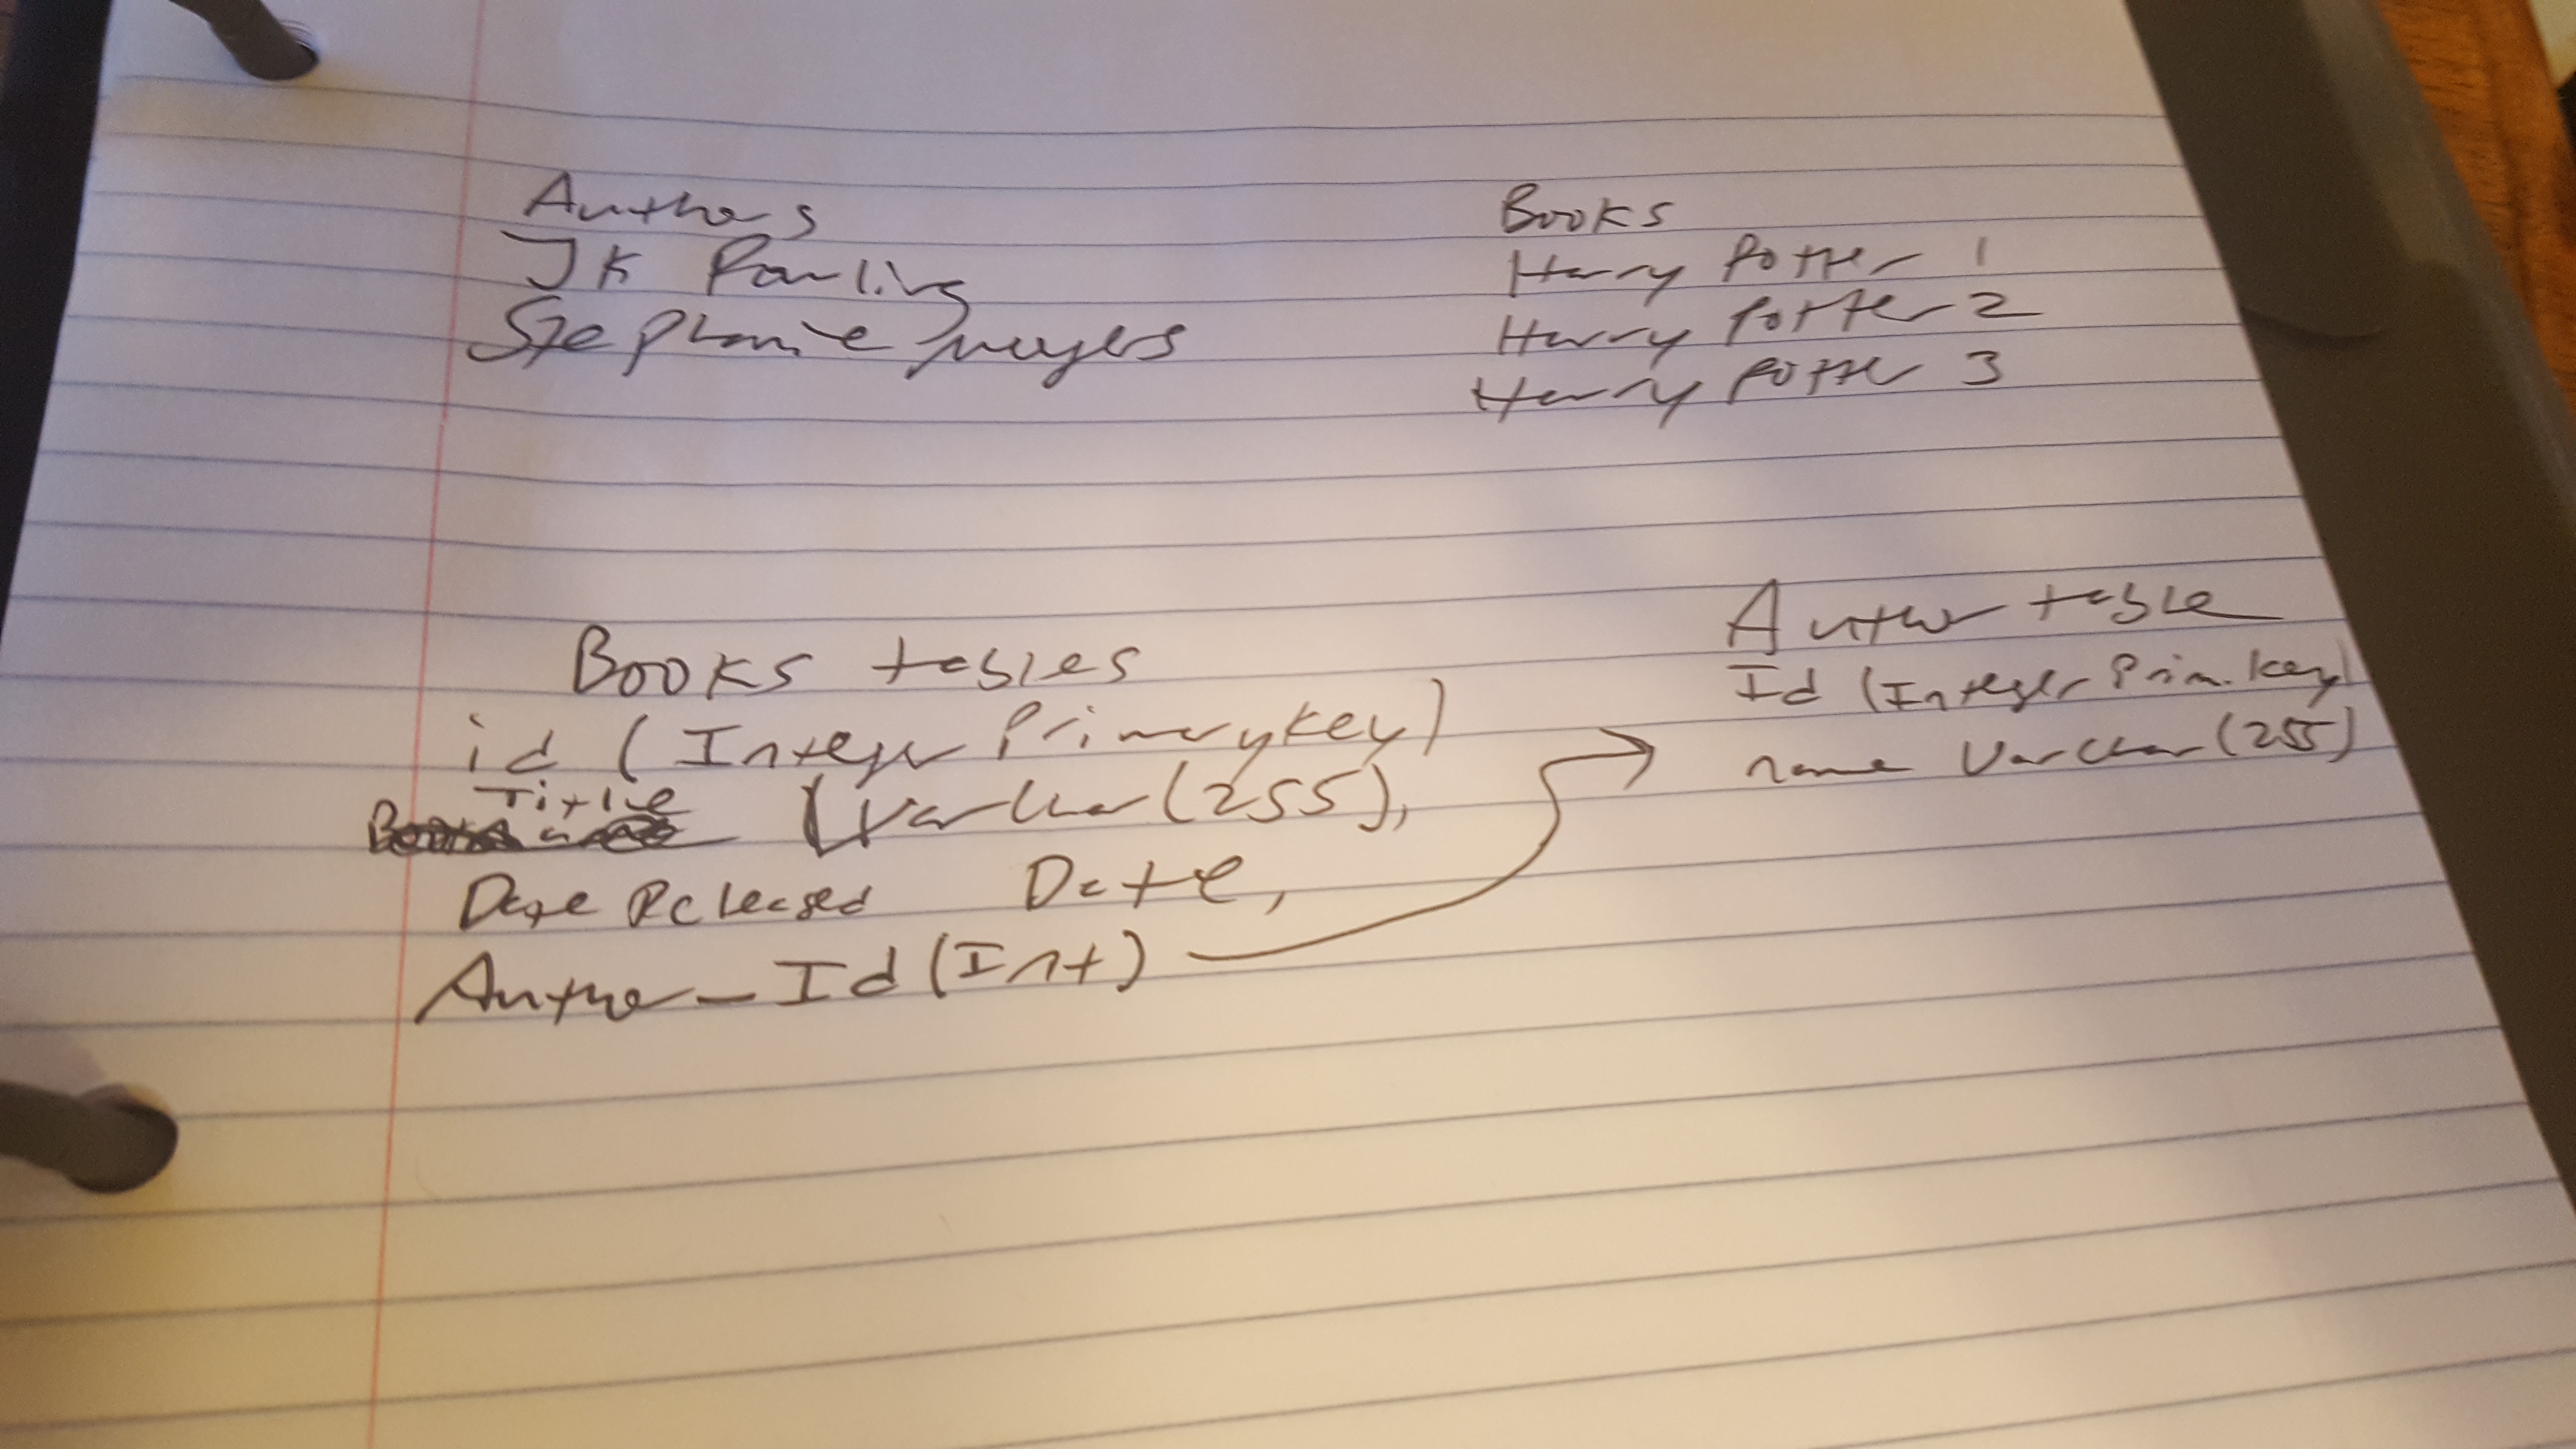 Authors
JK Rowling
Stephanie meyers
Books
Harry Potter 1
Harry Potter 2
Harry Potter 3
Books tables
id (Integer Primary Key)
Title (Varchar(255),
Date Released Date,
Author_Id (Int)
Author table
Id (Integer Prim. Key)
name Varchar (255)